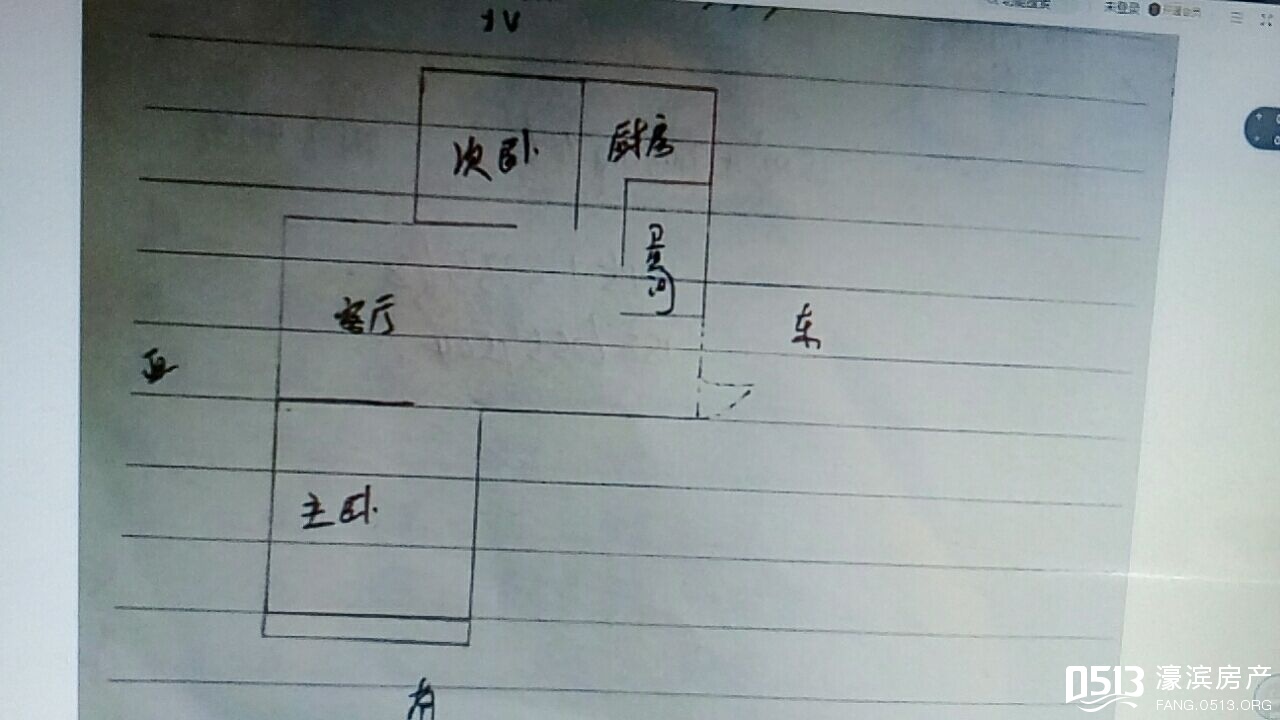 未登录
北
次卧
厨房
卫生间
客厅
东
西
主卧
南
0513 濠滨房产
FANG.0513.ORG